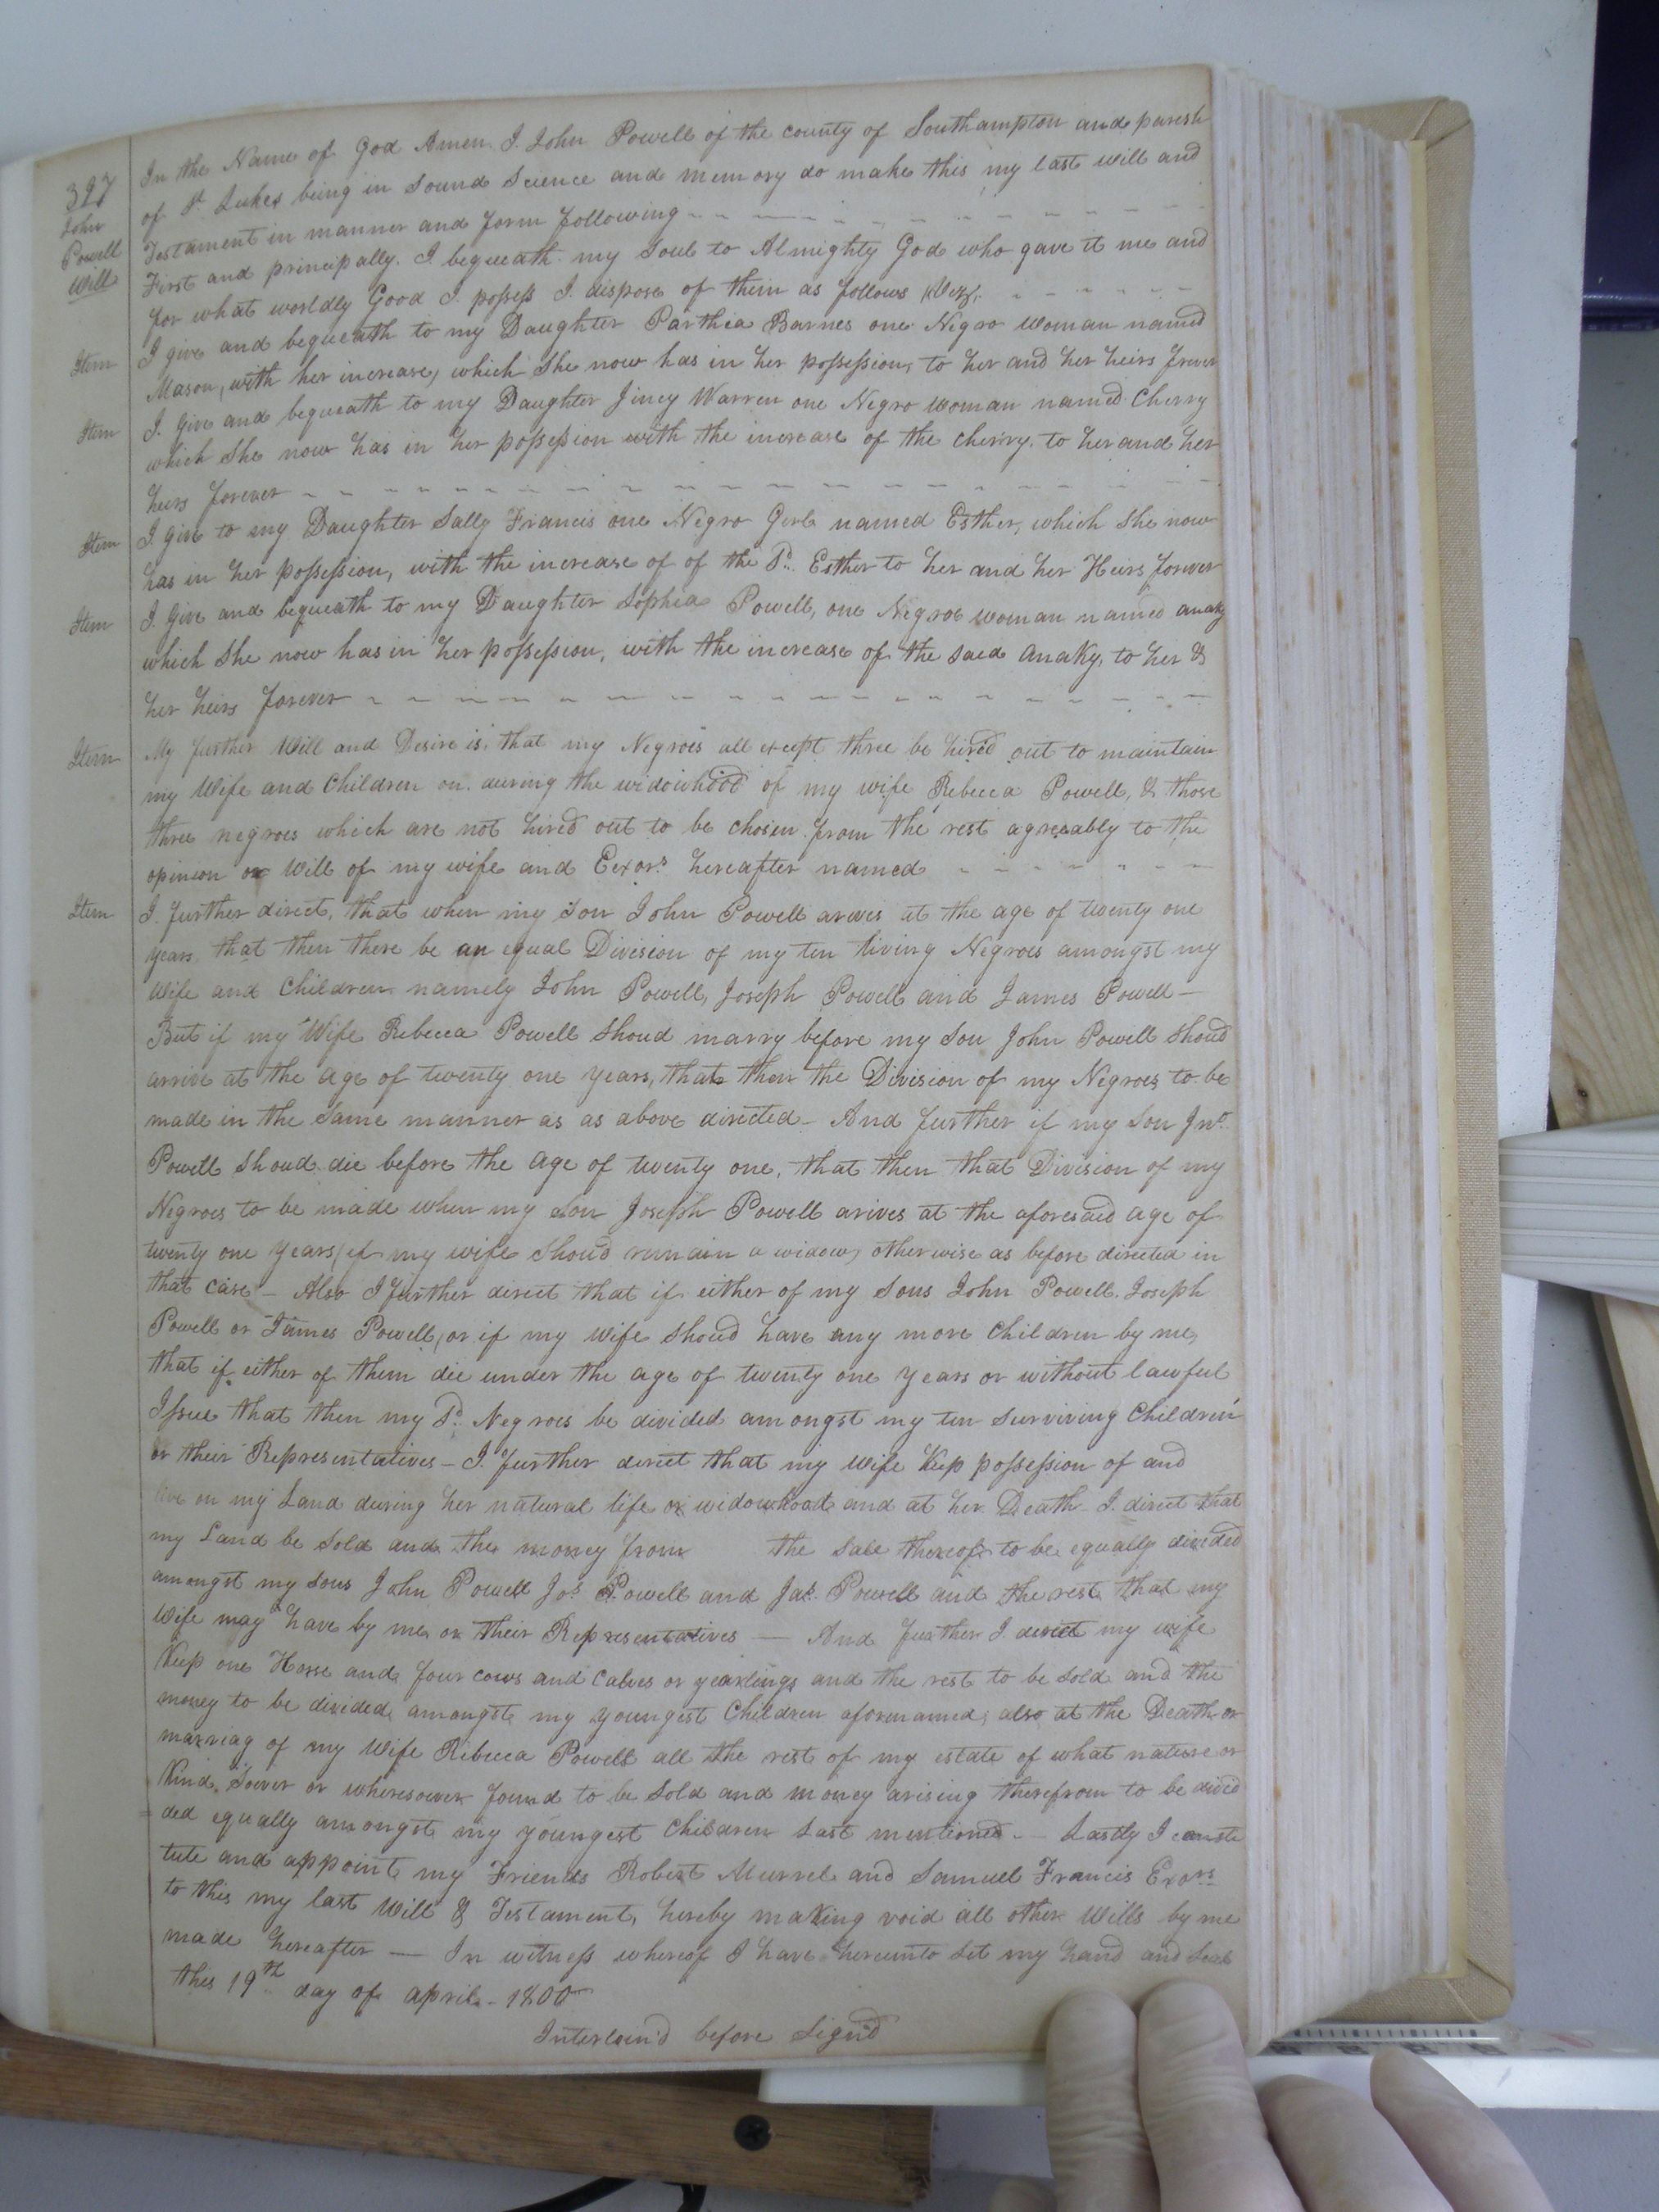 397
John
Powell
Will
In the Name of God Amen. I. John Powell of the county of Southampton and parish
of St. Lukes being in sound Science and memory do make this my last will and
Testament in manner and form following
First and principally. I. bequeath my Soul to Almighty God who gave it me and
for what worldly Good I. possess I. dispose of them as follows (Viz),
Item I give and bequeath to my Daughter Parthia Barnes one Negro woman named
Mason, with her increase, which She now has in her possession, to her and her heirs frever
Item I. Give and bequeath to my Daughter Jincy Warren one Negro woman named Cherry
which She now has in her possession with the increase of the cherry. to her and her
heirs forever
Item I. give to my Daughter Sally Francis one Negro Girl named Esther, which She now
has in her possession, with the increase of of the Sd. Esther to her and her Heirs forever
Item I. Give and bequeath to my Daughter Sophia Powell, one Negroe woman named anaky
which She now has in her possession, with the increase of the said Anaky, to her &
her heirs forever
Item My further Will and Desire is, that my Negroes all except three be hired out to maintain
my Wife and Children on. during the widowhood of my wife Rebecca Powell, & those
three negroes which are not hired out to be chosen from the rest agreeably to the
opinion or Will of my wife and Eexors. hereafter named
Item I. further direct, that when my Son John Powell arives at the age of twenty one
years, that then there be an equal Division of my ten living Negroes amongst my
Wife and Children namely John Powell, Joseph Powell and James Powell —
But if my Wife Rebecca Powell Shoud marry before my Son John Powell Shoud
arrive at the age of twenty one years, that then the Division of my Negroes to be
made in the Same manner as as above directed - And further if my Son Jno.
Powell Shoud die before the age of twenty one, that then that Division of my
Negroes to be made when my Son Joseph Powell arives at the aforesaid age of
twenty one years (if my wife Shoud remain a widow) otherwise as before directed in
that case - Also I further direct that if either of my Sons John Powell. Joseph
Powell or James Powell, or if my Wife Shoud have any more Children by me,
that if either of them die under the age of twenty one years or without lawful
Issue that then my Sd. Negroes be divided amongst my ten surviving Children
or their Representatives - I. further direct that my wife Keep possession of and
live on my Land during her natural life or widowhood and at her Death I. direct that
my Land be Sold and the money from the sale thereof to be equally divided
amongst my Sons John Powell Jos. Powell and Jas. Powell and the rest that my
Wife may have by me or their Representatives — And further I. direct my wife
Keep one Horse and four cows and calves or yearlings and the rest to be Sold and the
money to be divided amongst my youngest Children aforenamed; also at the Death or
marriag of my Wife Ribecca Powell all the rest of my estate of what nature or
Kind Soever or wheresoever found to be Sold and money arising therefrom to be divid
=ded equally amongst my youngest Children Last mentioned. — Lastly I consti
tute and appoint my Friends Robert Murrel and Samuel Francis Exors.
to this my last Will & Testament, hereby making void all other Wills by me
made hereafter — In witness whereof I have hereunto Set my hand and Seal
this 19th day of april - 1800
Interlin'd before Sign'd